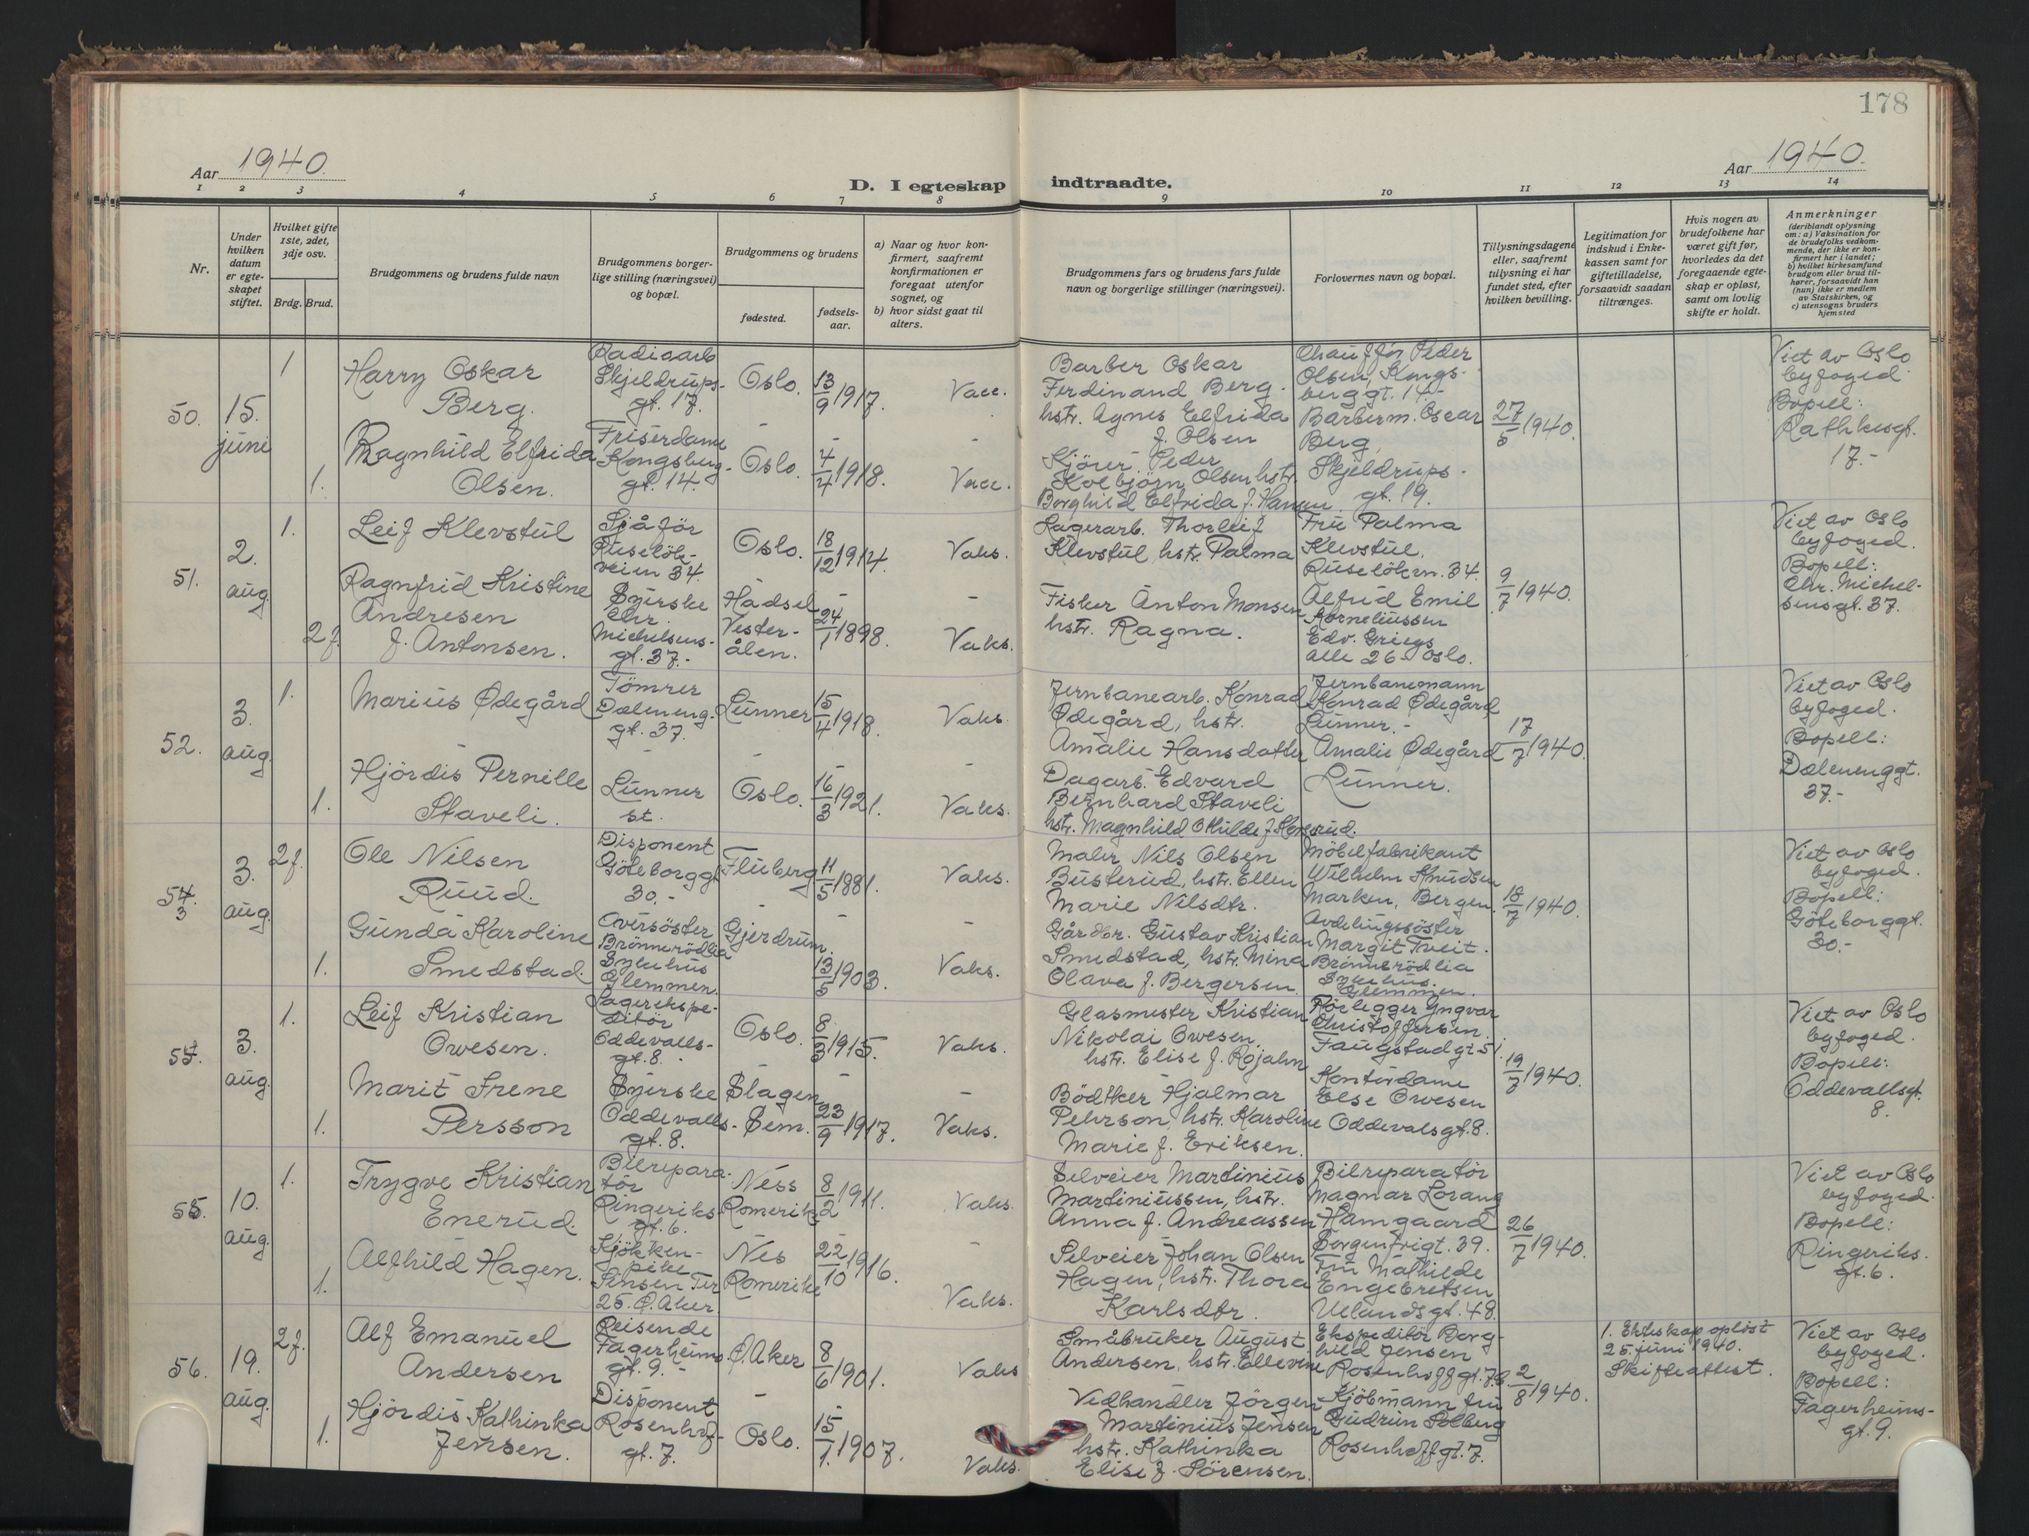 178
Aar 1940.
Aar 1940.
D. I egteskap indtraadte.
1 2 3 4 5 6 7 8 9 10 11 12 13 14
Nr.
Under hvilken datum er egte-skapet stiftet.
Hvilket gifte 1ste, 2det, 3dje osv.
Brdg. Brud.
Brudgommens og brudens fulde navn
Brudgommens borger-lige stilling (næringsvei) og bopæl.
Brudgommens og brudens
fødested.
fødsels-aar.
a) Naar og hvor kon-firmert, saafremt konfirmationen er foregaat utenfor sognet, og
b) hvor sidst gaat til alters.
Brudgommens fars og brudens fars fulde navn og borgerlige stillinger (næringsvei).
Forlovernes navn og bopæl.
Tillysningsdagene eller, saafremt tillysning ei har fundet sted, efter hvilken bevilling.
Legitimation for indskud i Enke-kassen samt for giftetilladelse, forsaavidt saadan tiltrænges.
Hvis nogen av brudefolkene har været gift før, hvorledes da det foregaaende egte-skap er opløst, samt om lovlig skifte er holdt.
Anmerkninger
(deriblandt oplysning om: a) Vaksination for de brudefolks vedkom-mende, der ikke er kon-firmert her i landet; b) hvilket kirkesamfund brudgom eller brud til-hører, forsaavidt han (hun) ikke er medlem av Statskirken, og c) utensogns bruders hjemsted
50. 15. juni
1
Harry Oskar
Berg.
Radioarb
Skjeldrups-
gt. 17.
Oslo. 13/9 1917. Vacc.
Barber Oskar
Ferdinand Berg.
hstr. Agnes Elfrida
f. Olsen
Chauffør Peder
Olsen, Kongs-
berggt. 14.-
Barberm. Oscar
Berg,
Skjeldrups-
gt. 19.
27/5 1940.
Viet av Oslo
byfoged.
Bopell:
Rathkesgt.
17.-
1.
Ragnhild Elfrida
Olsen.
Friserdame
Kongsberg-
gt. 14.
Oslo. 4/4 1918. Vacc.
Kjörer Peder
Kolbjörn Olsen hstr.
Borghild Elfrida f. Hansen.
51. 2. aug.
1.
Leif Klevstul
Sjåför
Ruselök-
veien 34.
Oslo. 18/12 1914. Vaks.
Lagerarb. Thorleif
Klevstul, hstr. Palma
Fru Palma
Klevstul.
Ruselökvn. 34.
Alfrid Emil
Korneliussen
Edv. Griegs
alle 26 Oslo.
9/7 1940.
Viet av Oslo
byfoged.
Bopell:
Chr. Michel-
sensgt. 37.
2 f.
Ragnfrid Kristine
Andresen
f. Antonsen.
Syerske
Chr.
Michelsens-
gt. 37.-
Hadsel
Vester-
ålen.
24/1 1898. Vaks.
Fisker Anton Monsen
hstr. Ragna.
52. 3. aug.
1.
Marius Ødegård
Tömrer
Dæleneng.
gt. 37.
Lunner 15/4 1918. Vaks.
Jernbanearb. Konrad
Ødegård, hstr.
Amalie Hansdatter
Jernbanemann
Konrad Ødegård
Lunner.-
Amalie Ødegård
Lunner.
17/7 1940.
Viet av Oslo
byfoged.
Bopell:
Dælenenggt.
37.-
1.
Hjördis Pernille
Staveli.
Lunner
st.
Oslo. 16/3 1921. Vaks.
Dagarb. Edvard
Bernhard Staveli
hstr. Magnhild
54. 3 3. aug.
2 f.
Ole Nilsen
Ruud.
Disponent
Göteborggt
30.-
Fluberg 11/5 1881. Vaks.
Maler Nils Olsen
Busterud, hstr. Ellen
Marie Nilsdtr.
Möbelfabrikant
Wilhelm Knudsen
Marken, Bergen.
Avdelingssöster
Margit Tveit.
Brönnerödlia
Sykehus.
Glemmen.
18/7 1940.
Viet av Oslo
byfoged.
Bopell:
Göteborggt.
30.-
1.
Gunda Karoline
Smedstad.
Oversöster
Brönnerödlia
Sykehus
Glemmen.
Gjerdrum.
13/5 1903. Vaks.
Gårdbr. Gustav Kristian
Smedstad, hstr. Mina
Olava f. Bergersen.
54. 3. aug.
1.
Leif Kristian
Owesen.
Lagerekspe-
ditör
Oddevalls-
gt. 8.
Oslo. 8/3 1915. Vaks.
Glasmester Kristian
Nikolai Owesen.
hstr. Elise f. Röjahn
Rörlegger Yngvar
Christoffersen.
Faugstadgt 51.
Kontordame
Else Owesen
Oddevalsgt. 8.
19/7 1940.
Viet av Oslo
byfoged.
Bopell:
Oddevallsgt.
8.
1.
Marit Irene
Persson
Syerske
Oddevalls-
gt. 8.
Slagen
Sem.
23/9 1917. Vaks.
Bödtker Hjalmar
Pehrson, hstr. Karoline
Marie f. Eriksen.
55. 10. aug.
1.
Trygve Kristian
Enerud.
Bilrepara-
tör
Ringeriks-
gt. 6.
Nes
Romerike
8/2 1911. Vaks.
Selveier Martinius
Martiniussen, hstr.
Anna f. Andreassen
Bilreparatör
Magnar Lorang
Hamgaard
Borgenfrigt. 39.
Fru Mathilde
Engebretsen
Uelandsgt. 48.
26/7 1940.
Viet av Oslo
byfoged.
Bopell:
Ringeriks.
gt. 6.
1.
Alfhild Hagen.
Kjökken-
pike
Sinsen Ter
25. Ø. Aker.
Nes
Romerike
22/10 1916. Vaks.
Selveier Johan Olsen
Hagen, hstr. Thora
Karlsdtr.
56. 19. aug.
2 f.
Alf Emanuel
Andersen
Reisende
Fagerheims
gt. 9.-
Ø. Aker 8/6 1901. Vaks
Småbruker August
Andersen, hstr. Ellevine
Ekspeditör Borg-
hild Jensen
Rosenhoffgt. 7.
Kjöbmann fru
Gudrun Solberg
Rosenhoffgt. 7.
2/8 1940.
1. Ekteskap oplöst
25. juni 1940.
Skifteattest.
Viet av Oslo
byfoged.
Bopell:
Fagerheims-
gt. 9.
1.
Hjördis Kathinka
Jensen.
Disponent
Rosenhof-
gt. 7.
Oslo. 15/1 1907. Vaks.
Vedhandler Jörgen
Martinius Jensen
hstr. Kathinka
Elise f. Sörensen.